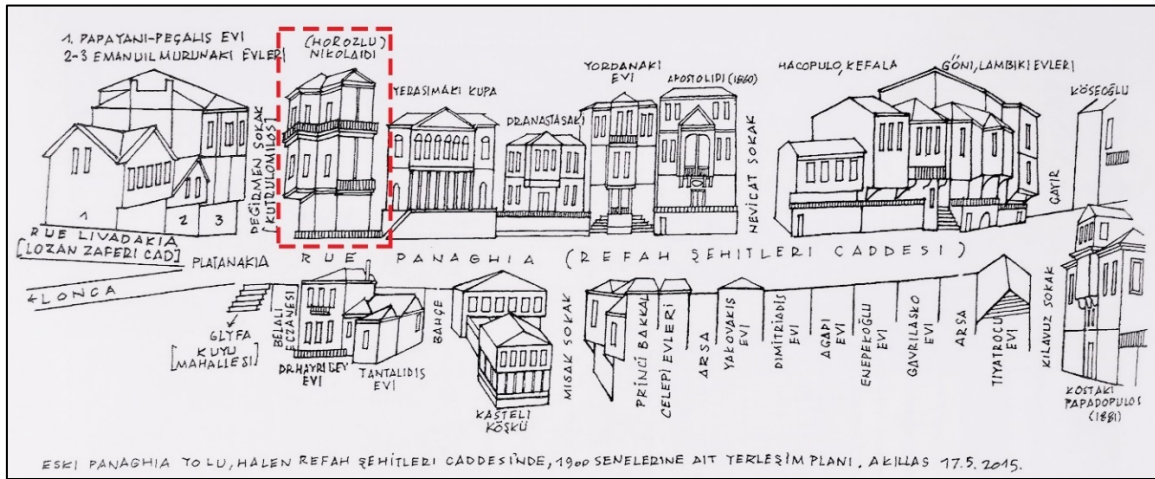 1. PAPAYANI-PEGALİS EVİ
2-3 EMANUIL MURUNAKİ EVLERİ
(HOROZLU)
NİKOLAİDİ
YERASİMAKİ KUPA
DR.ANASTASAKİ
YORDANAKİ
EVİ
APOSTOLİDİ (1860)
HACOPULO, KEFALA
GÖNİ, LAMBİKİ EVLERİ
KÖSEOĞLU
DEĞİRMEN SOKAK
[KUTRULOMİLOS]
NEVİCAT SOKAK
ÇAYIR
1
2
3
RUE LIVADAKIA
[LOZAN ZAFERİ CAD]
PLATANAKIA
RUE PANAGHIA (REFAH ŞEHİTLERİ CADDESİ)
LONCA
GLYFA
KUYU
[MAHALLESİ]
BELALİ
ECZANESİ
DR.HAYRİ BEY
EVİ
TANTALIDIS
EVİ
BAHÇE
KASTELİ
KÖŞKÜ
MISAK SOKAK
PRİNCİ BAKKAL
CELEPİ EVLERİ
ARSA
YAKOVAKIS
EVİ
DIMITRIADIS
EVİ
AGAPI
EVİ
ENEPEKOĞLU
EVİ
GAVRILASKO
EVİ
ARSA
TİYATROCU
EVİ
KILAVUZ SOKAK
KOSTAKİ
PAPADOPULOS
(1881)
ESKİ PANAGHIA YOLU, HALEN REFAH ŞEHİTLERİ CADDESİNDE, 1900 SENELERİNE AİT YERLEŞİM PLANI. AKILLAS 17.5.2015.